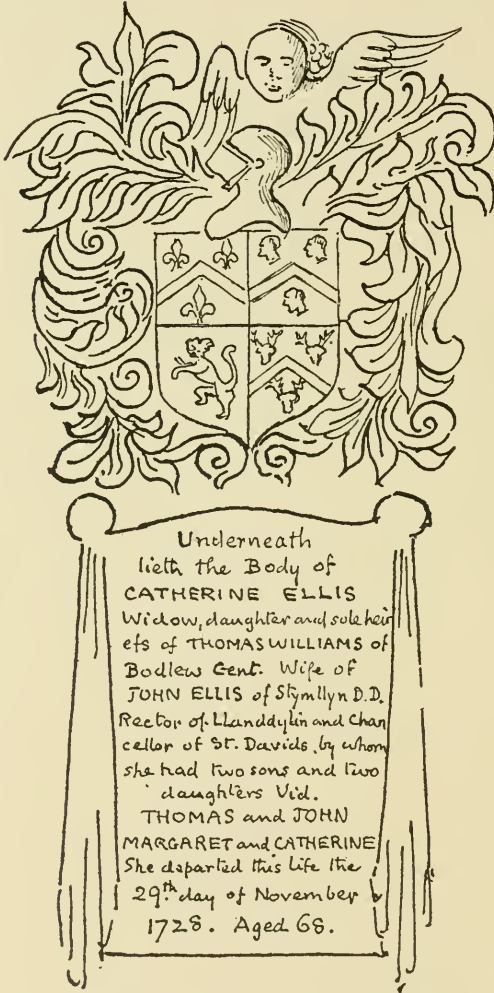 Underneath
lieth the Body of
CATHERINE ELLIS
Widow, daughter and sole heir
efs of THOMAS WILLIAMS of
Bodlew Gent. Wife of
JOHN ELLIS of Stymllyn D.D.
Rector of Llanddylin and Chan
cellor of St. Davids, by whom
she had two sons and two
daughters Vid.
THOMAS and JOHN
MARGARET and CATHERINE
She departed this life the
29.th day of November
1728. Aged 68.